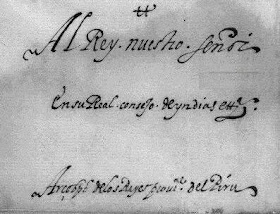 Al Rey. nuestro. señor
En su Real. consejo. de yndias etc.
Arçobpo de los Reyes del Piru